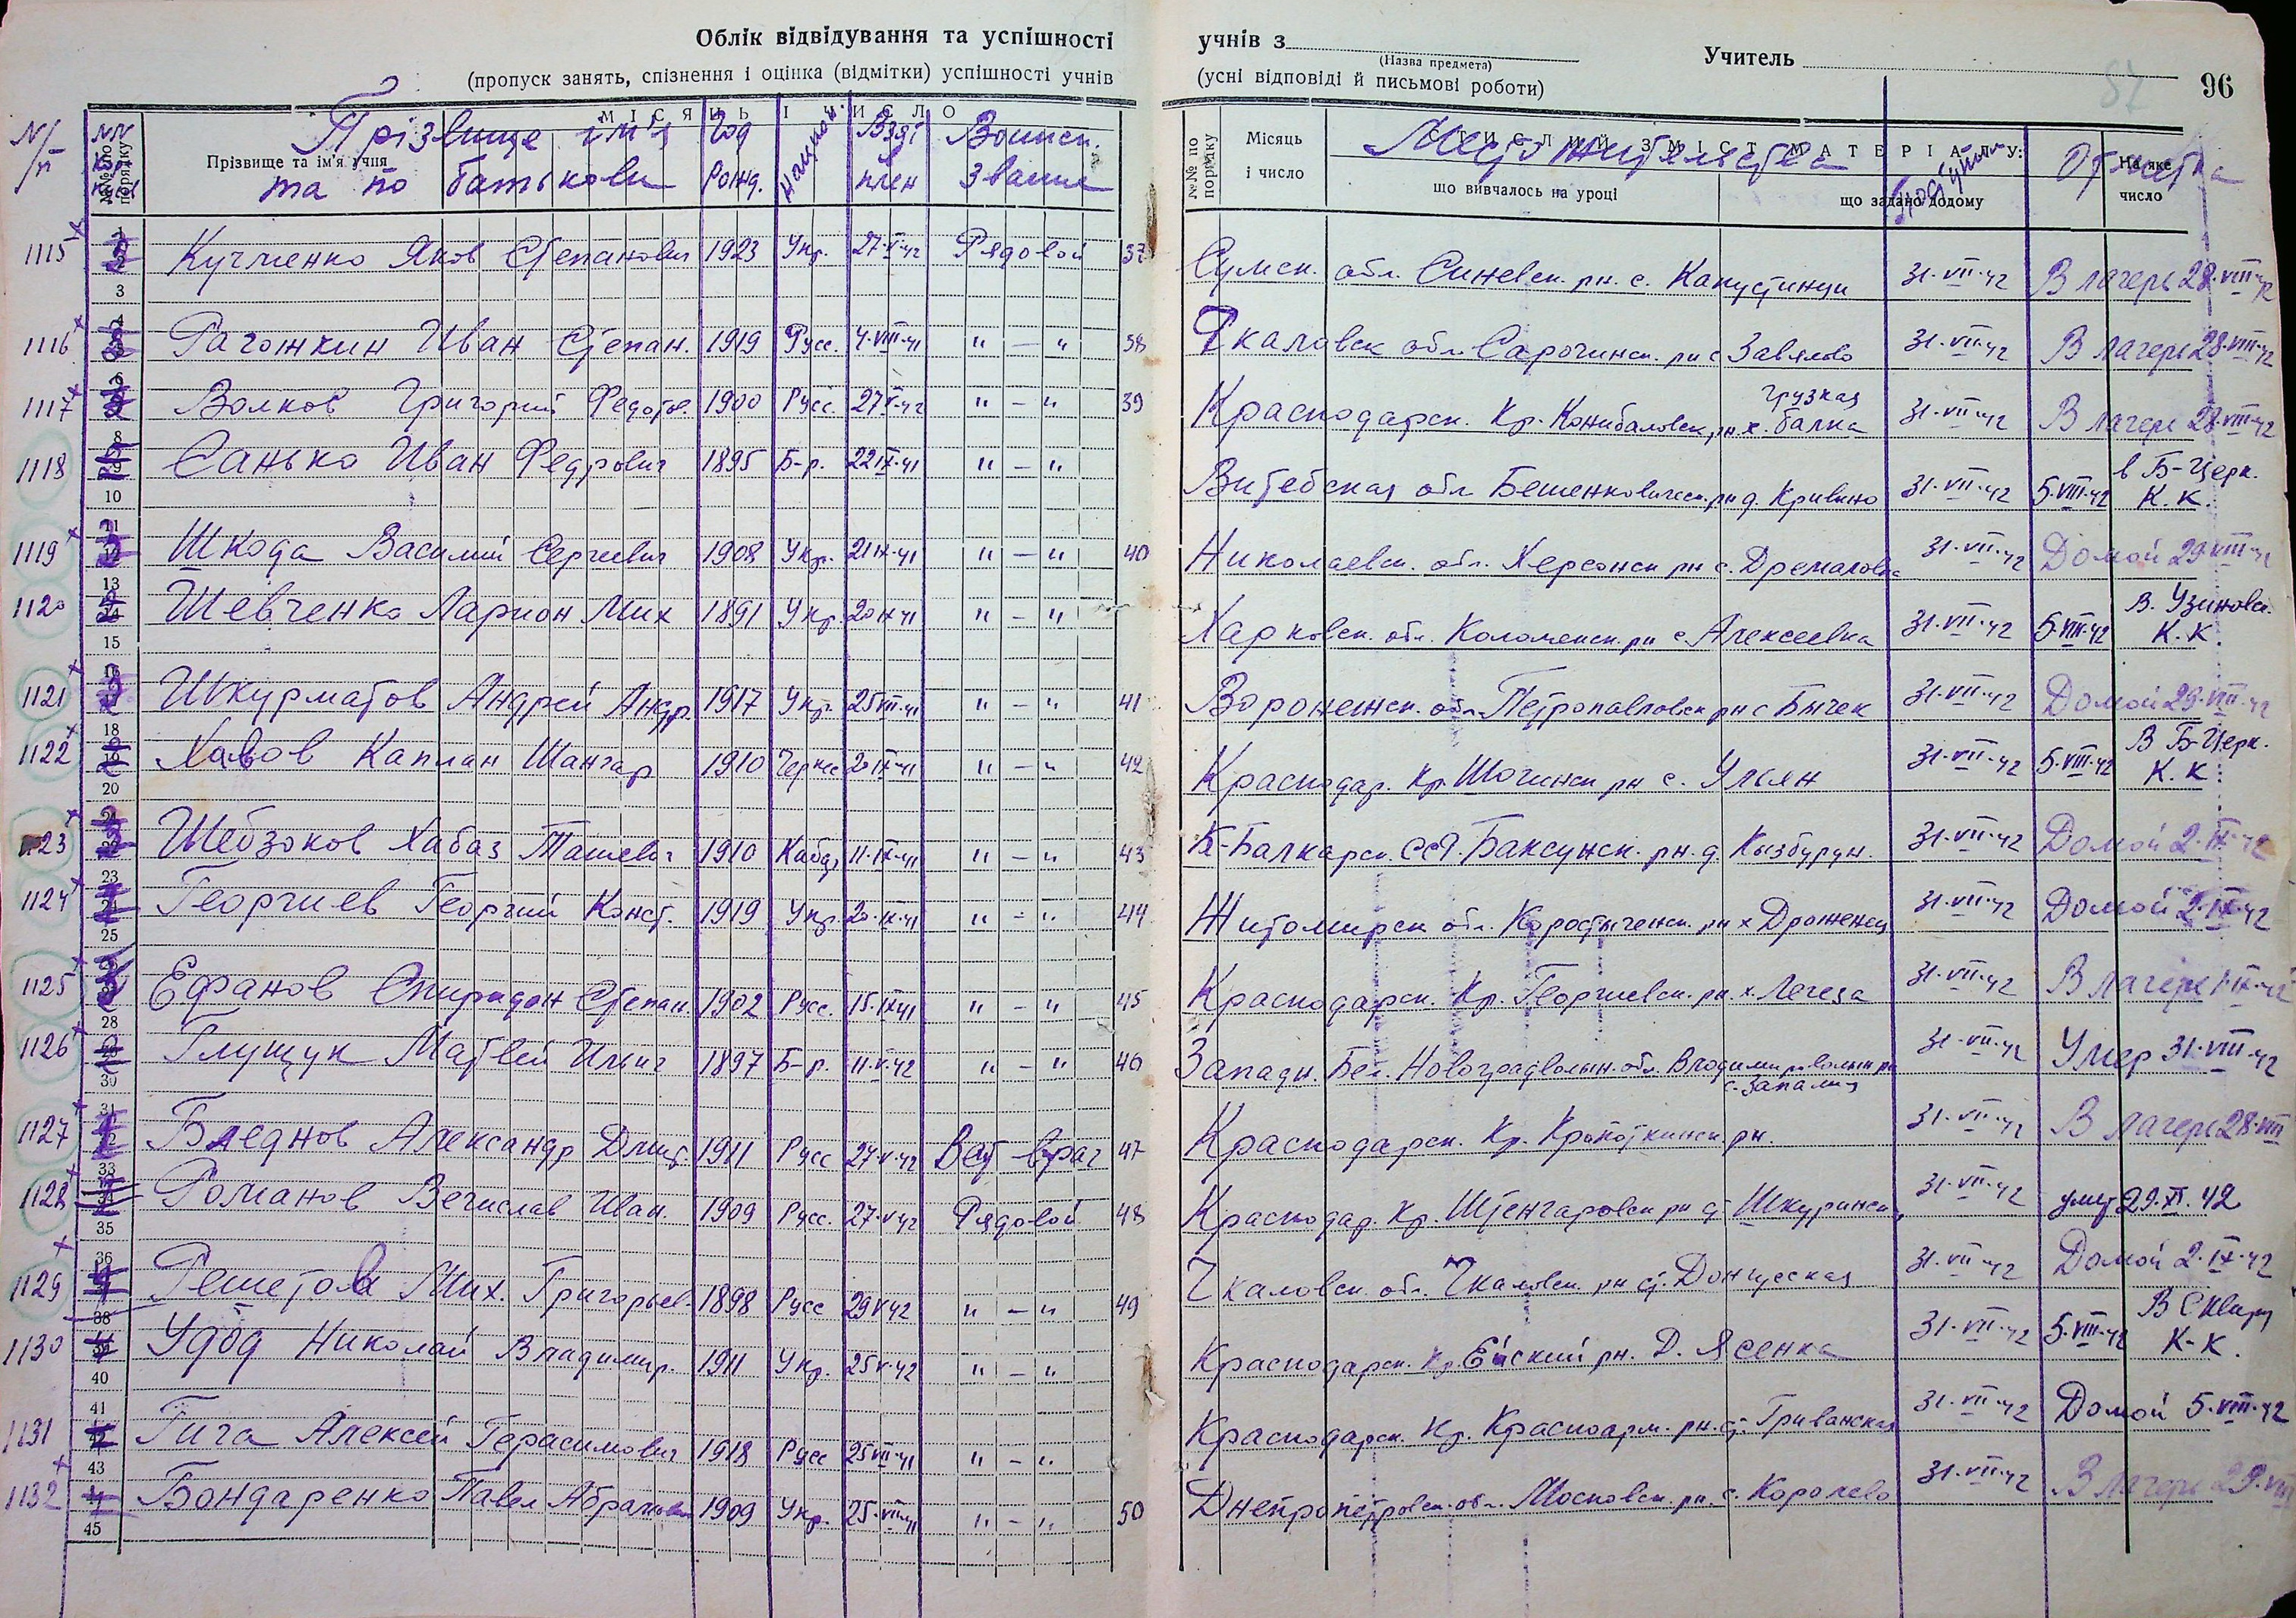 Облік відвідування та успішності учнів з (Назва предмета) Учитель 96
(пропуск занять, спізнення і оцінка (відмітки) успішності учнів (усні відповіді й письмові роботи) 87
№№ по порядку Прізвище та ім'я учня МІСЯЦЬ І ЧИСЛО №№ по порядку Місяць і число СТИСЛИЙ ЗМІСТ МАТЕРІАЛУ: що вивчалось на уроці що задано додому На яке число
N/п Прізвище ім'я та по батькови Год рожд. национ Взят плен Воинск. звание Место жительства поступил Отметка
1115 Кучменко Яков Степанович 1923 Укр. 27·V·42 Рядовой 37 Сумск. обл. Синевск. рн. с. Капустинци 31·VII·42 В лагерь 28·VIII·42
1116 Рагожкин Иван Степан. 1919 Русс. 4·VIII·41 " — " 38 Чкаловск обл. Сарочинск. рн с Завялово 31·VII·42 В лагерь 28·VIII·42
1117 Волков Григорий Федотов. 1900 Русс. 27·V·42 " — " 39 Краснодарск. Кр. Конибаловск. рн. х. Грузкая балка 31·VII·42 В лагерь 28·VIII·42
1118 Санько Иван Федрович 1895 Б-р. 22·IX·41 " — " Витебская обл Бешенковическ. рн д. Кривино 31·VII·42 5·VIII·42 в Б-Церк. К. К.
1119 Шкода Василий Сергиевич 1908 Укр. 21·IX·41 " — " 40 Николаевск. обл. Херсонск рн с. Дремаловка 31·VII·42 Домой 29·VIII·42
1120 Шевченко Ларион Мих 1891 Укр. 20·IX·41 " — " Харковск. обл. Коломенск. рн с Алексеевка 31·VII·42 5·VIII·42 В. Узиновск. К. К.
1121 Шкурматов Андрей Андр. 1917 Укр. 25·VII·41 " — " 41 Воронежск. обл. Петропавловск рн с Бычек 31·VII·42 Домой 29·VIII·42
1122 Каплан Шангар 1910 Черкес 20·IX·41 " — " 42 Краснодар. Кр. Шогинск рн с. Ульян 31·VII·42 5·VIII·42 В Б-Церк. К. К.
1123 Шебзохов Хабаз Ташевич 1910 Кабар 11·IX·41 " — " 43 К-Балкарск. ССР. Баксунск. рн. д. Кызбурун. 31·VII·42 Домой 2·IX·42
1124 Георгиев Георгий Конст. 1919 Укр. 20·IX·41 " — " 44 Житомирск обл. Коростышенск. рн х Дроженец 31·VII·42 Домой 2·IX·42
1125 Ефанов Спиридон Степан. 1902 Русс. 15·IX·41 " — " 45 Краснодарск. Кр. Георгиевск. рн. х. Легеза 31·VII·42 В лагерь 1·IX·42
1126 Глущук Матвей Ильич 1897 Б-р. 11·V·42 " — " 46 Западн. Бел. Новоградволын. обл. Владимирволын рн с. Запалиц 31·VII·42 Умер 31·VIII·42
1127 Бледнов Александр Дмит. 1911 Русс 27·V·42 Вет врач 47 Краснодарск. Кр. Кропоткинск. рн. 31·VII·42 В лагерь 28·VIII
1128 Романов Вечислав Иван. 1909 Русс. 27·V·42 Рядовой 48 Краснодар. Кр. Штенгаровск рн ст Шкуринск. 31·VII·42 29.XI.42
1129 Решетов Мих. Григорьев. 1898 Русс 29·V·42 " — " 49 Чкаловск. обл. Чкаловск. рн ст. Донгусская 31·VII·42 Домой 2·IX·42
1130 Удод Николай Владимир. 1911 Укр. 25·V·42 " — " Краснодарск. Кр. Ейский рн. Д. Ясенка 31·VII·42 5·VIII·42 В Сквиру К-К.
1131 Гича Алексей Герасимович 1918 Русс 25·VII·41 " — " Краснодарск. Кр. Красноарм. рн. ст. Гриванская 31·VII·42 Домой 5·VIII·42
1132 Бондаренко Павел Абрамович 1909 Укр. 25·VIII·41 " — " 50 Днепропетровск. обл. Московск. рн. с. Королево 31·VII·42 В лагерь 29·VIII